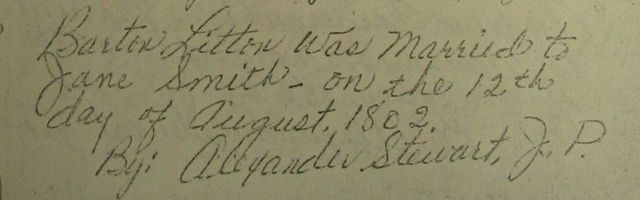 Barton Litton was Married to
Jane Smith - on the 12th
day of August, 1802.
By: Alexander Stewart, J. P.